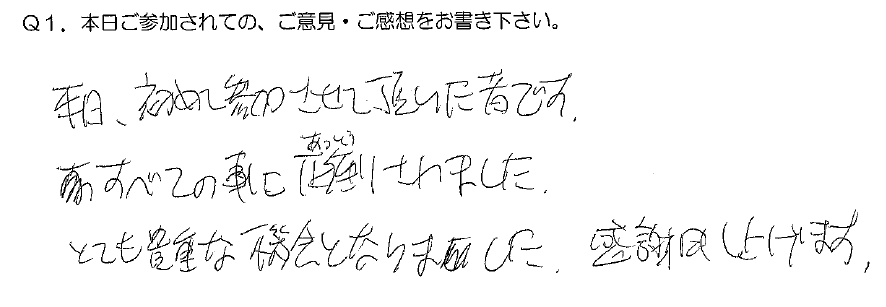 Q1. 本日ご参加されての、ご意見・ご感想をお書き下さい。
本日、初めて参加させて頂いた者です.
すべての事に圧倒されました.
あっとう
とても貴重な機会となりました. 感謝申し上げます,